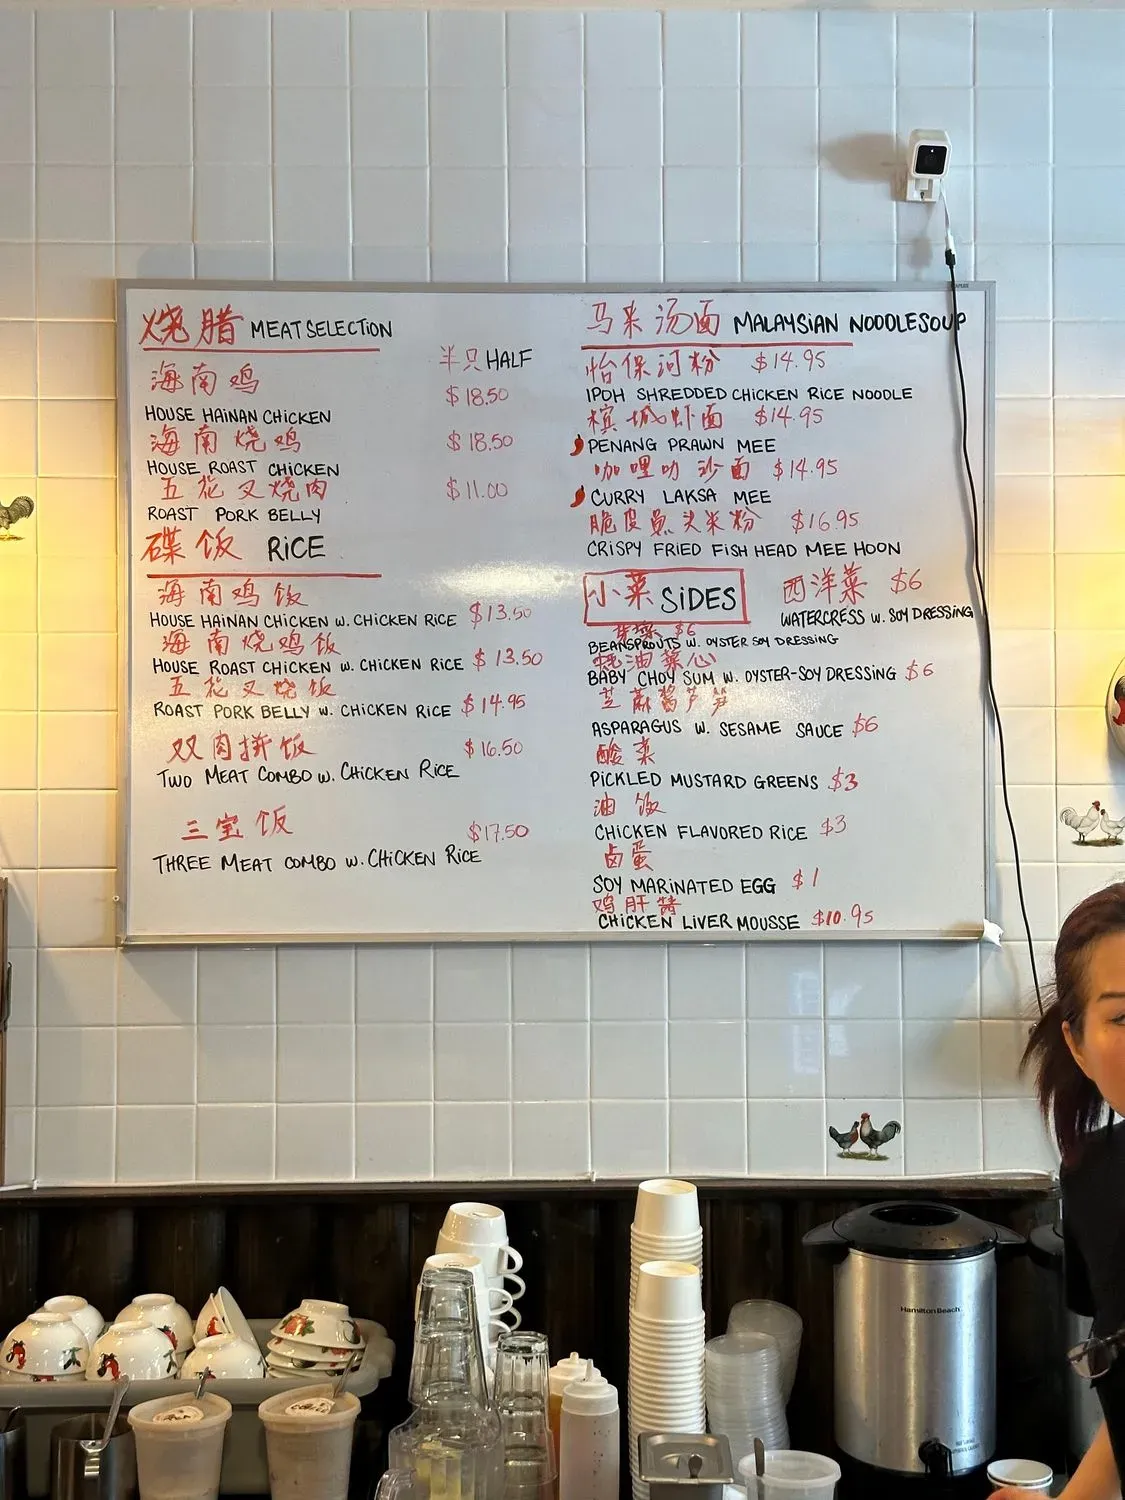 烧腊 MEAT SELECTION
半只 HALF
海南鸡 $18.50
HOUSE HAINAN CHICKEN
海南烧鸡 $18.50
HOUSE ROAST CHICKEN
五花叉烧肉 $11.00
ROAST PORK BELLY
碟饭 RICE
海南鸡饭
HOUSE HAINAN CHICKEN W. CHICKEN RICE $13.50
海南烧鸡饭
HOUSE ROAST CHICKEN W. CHICKEN RICE $13.50
五花叉烧饭
ROAST PORK BELLY W. CHICKEN RICE $14.95
双肉拼饭 $16.50
TWO MEAT COMBO W. CHICKEN RICE
三宝饭 $17.50
THREE MEAT COMBO W. CHICKEN RICE
马来汤面 MALAYSIAN NOODLESOUP
怡保河粉 $14.95
IPOH SHREDDED CHICKEN RICE NOODLE
槟城虾面 $14.95
PENANG PRAWN MEE
咖哩叻沙面 $14.95
CURRY LAKSA MEE
脆皮鱼头米粉 $16.95
CRISPY FRIED FISH HEAD MEE HOON
小菜 SIDES
西洋菜 $6
WATERCRESS W. SOY DRESSING
芽菜 $6
BEANSPROUTS W. OYSTER SOY DRESSING
蚝油菜心
BABY CHOY SUM W. OYSTER-SOY DRESSING $6
芝麻酱芦笋
ASPARAGUS W. SESAME SAUCE $6
酸菜
PICKLED MUSTARD GREENS $3
油饭
CHICKEN FLAVORED RICE $3
卤蛋
SOY MARINATED EGG $1
鸡肝酱
CHICKEN LIVER MOUSSE $10.95
HamiltonBeach